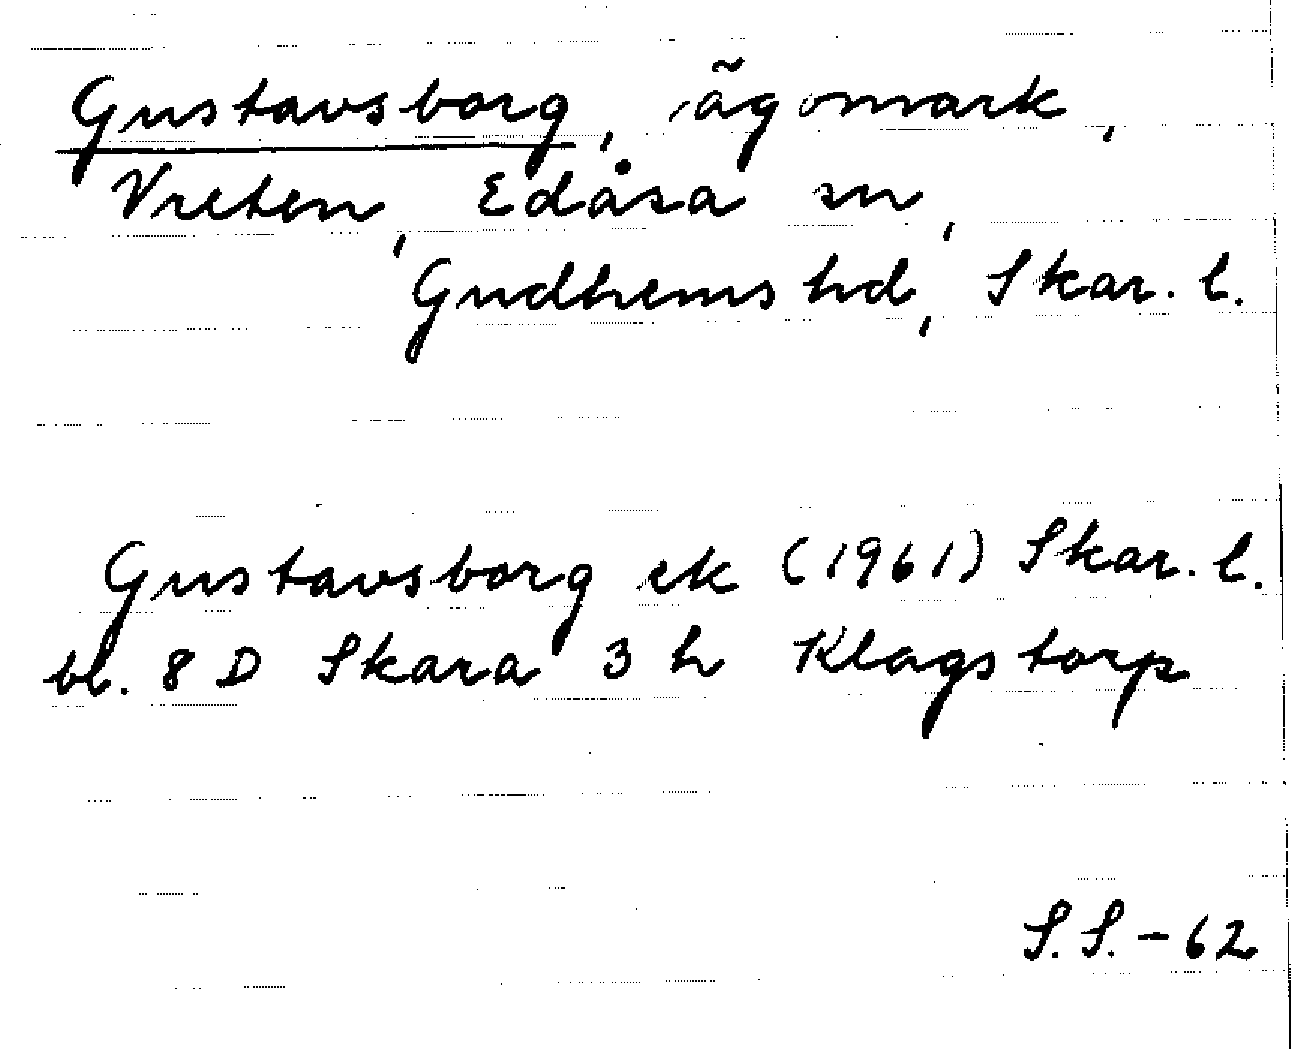 Gustavsborg, ägomark,
Vreten, Edåsa sn,
Gudhems hd, Skar. l.
Gustavsborg ek (1961) Skar. l.
bl. 8 D Skara 3 h Klagstorp
S.S. - 62